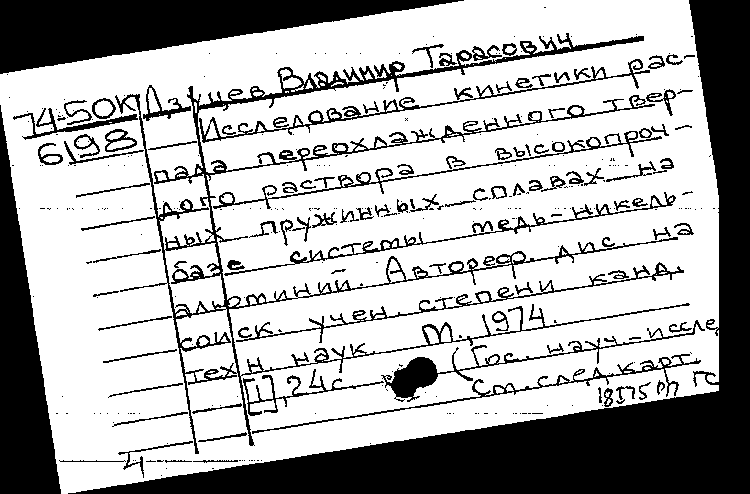 74-50К Дзуцев, Владимир Тарасович
6198 Исследование кинетики рас-
пада переохлажденного твер-
дого раствора в высокопроч-
ных пружинных сплавах на
базе системы медь-никель-
алюминий. Автореф. дис. на
соиск. учен. степени канд.
техн. наук. М., 1974.
[1], 24с. (Гос. науч.-иссле
См. след. карт.
4